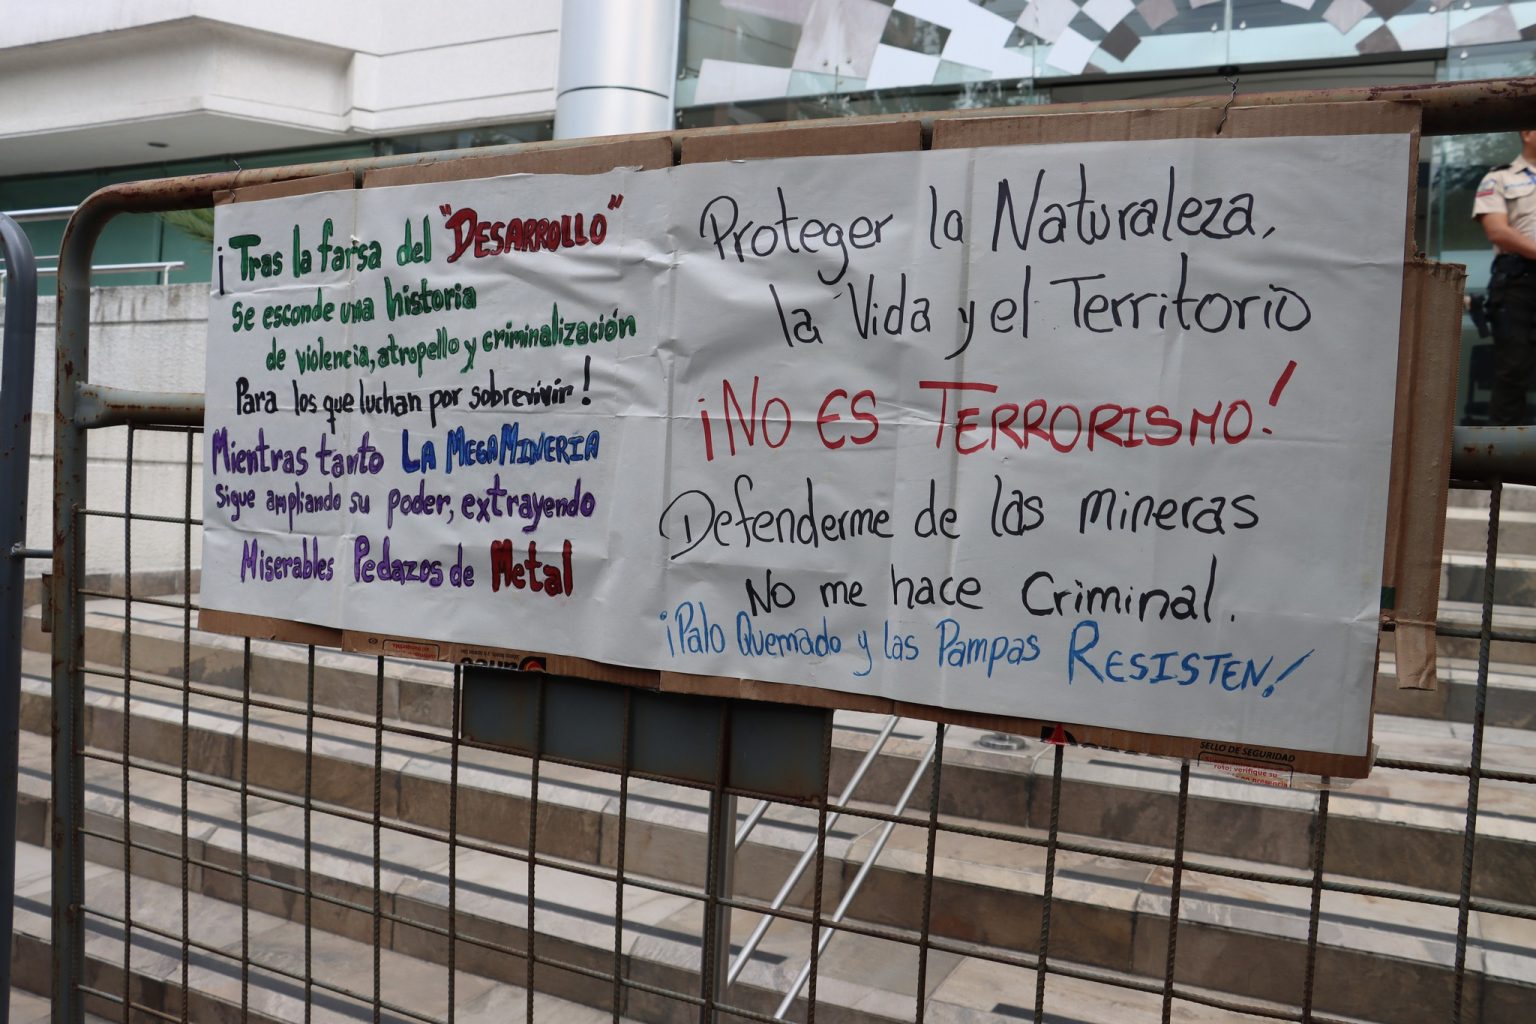 ¡Tras la farsa del "DESARROLLO"
se esconde una historia
de violencia, atropello y criminalización
Para los que luchan por sobrevivir!
Mientras tanto LA MEGAMINERIA
sigue ampliando su poder, extrayendo
Miserables Pedazos de Metal
Proteger la Naturaleza,
la Vida y el Territorio
¡NO ES TERRORISMO!
Defenderme de las mineras
No me hace Criminal.
¡Palo Quemado y las Pampas RESISTEN!
SELLO DE SEGURIDAD